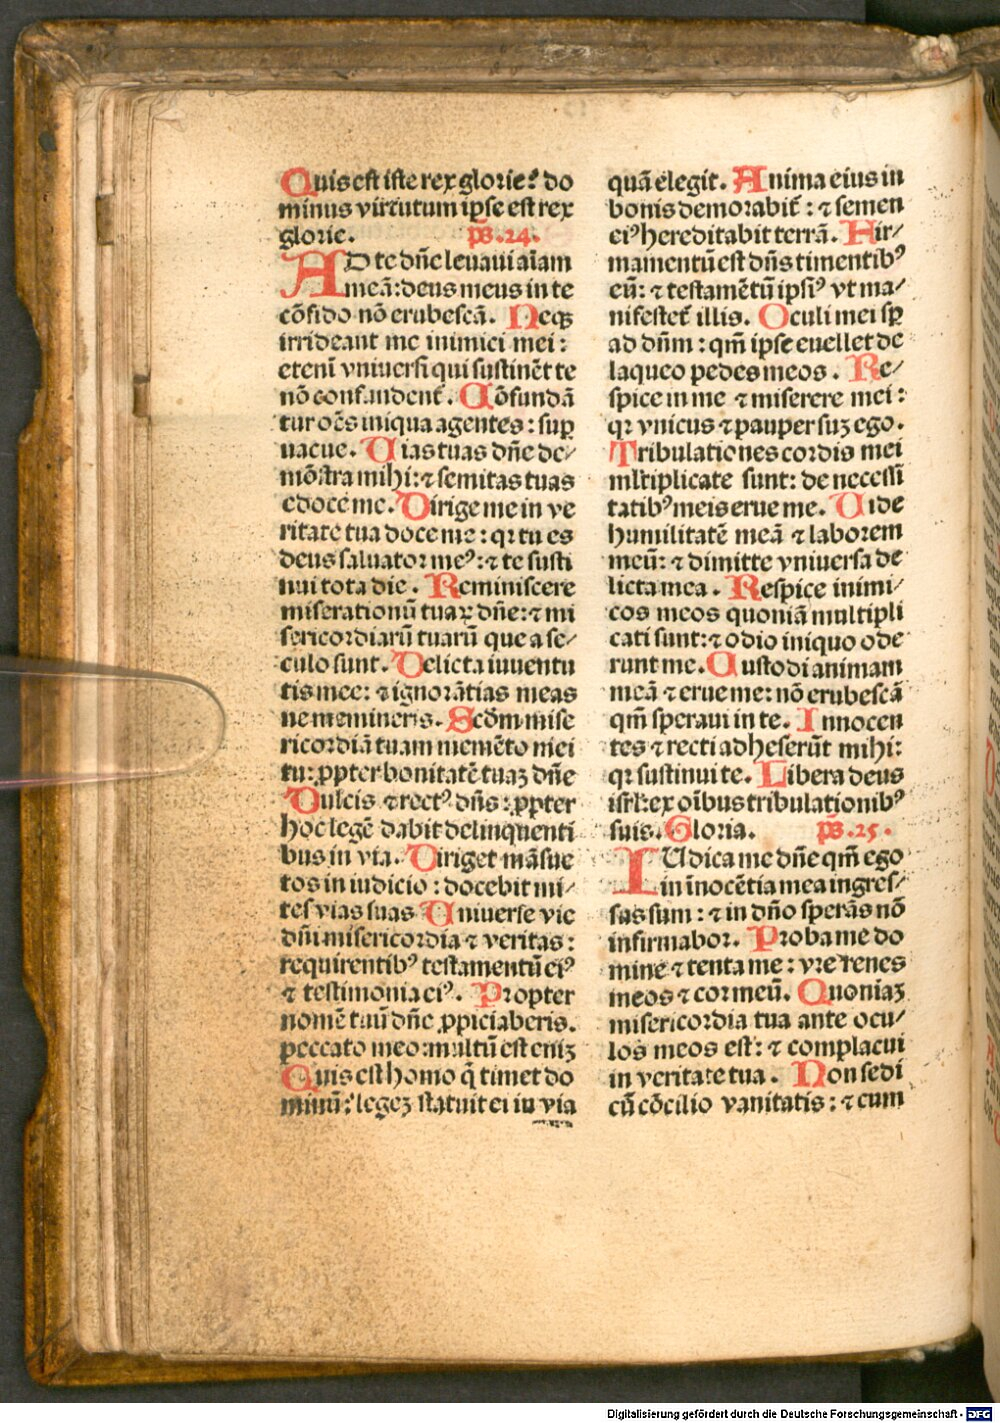 Quis est iste rex glorie? do
minus virtutum ipse est rex
glorie. ps. 24.
AD te dñe leuaui aīam
meā: deus meus in te
cōfido nō erubescā. Neq;
irrideant me inimici mei:
etenī vniuersi qui sustinēt te
nō confundent̄. Cōfundā
tur oēs iniqua agentes: sup̄
uacue. Uias tuas dñe de/
mōstra mihi: ⁊ semitas tuas
edoce me. Dirige me in ve
ritate tua doce me: qꝛ tu es
deus saluator meꝰ: ⁊ te susti
nui tota die. Reminiscere
miserationū tuaꝝ dñe: ⁊ mi
sericordiarū tuarū que a se/
culo sunt. Delicta iuuentu
tis mee: ⁊ ignorātias meas
ne memineris. Scd̄m mise
ricordiā tuam memēto mei
tu: ꝓpter bonitatē tuaꝫ dñe
Dulcis ⁊ rectꝰ dñs: ꝓpter
hoc legē dabit delinquenti
bus in via. Diriget māsue
tos in iudicio: docebit mi/
tes vias suas Uniuerse vie
dñi misericordia ⁊ veritas:
requirentibꝰ testamentū eiꝰ
⁊ testimonia eiꝰ. Propter
nomē tuū dñe ꝓpiciaberis.
peccato meo: multū est eniꝫ
Quis est homo q̄ timet do
minū: legeꝫ statuit ei in via
quā elegit. Anima eius in
bonis demorabit̄: ⁊ semen
eiꝰ hereditabit terrā. Fir/
mamentū est dñs timentibꝰ
eū: ⁊ testamētū ipsiꝰ vt ma/
nifestet̄ illis. Oculi mei sp̄
ad dñm: qm̄ ipse euellet de
laqueo pedes meos. Re/
spice in me ⁊ miserere mei:
qꝛ vnicus ⁊ pauper suꝫ ego.
Tribulationes cordis mei
mltiplicate sunt: de necessi
tatibꝰ meis erue me. Uide
humilitatē meā ⁊ laborem
meū: ⁊ dimitte vniuersa de
licta mea. Respice inimi/
cos meos quoniā multipli
cati sunt: ⁊ odio iniquo ode
runt me. Custodi animam
meā ⁊ erue me: nō erubescā
qm̄ speraui in te. Innocen
tes ⁊ recti adheserūt mihi:
qꝛ sustinui te. Libera deus
isrl̄ ex oībus tribulationibꝰ
suis. Gloria. ps. 25.
IUdica me dñe qm̄ ego
in īnocētia mea ingres/
sus sum: ⁊ in dño sperās nō
infirmabor. Proba me do
mine ⁊ tenta me: vre renes
meos ⁊ cor meū. Quoniaꝫ
misericordia tua ante ocu/
los meos est: ⁊ complacui
in veritate tua. Non sedi
cū cōcilio vanitatis: ⁊ cum
Digitalisierung gefördert durch die Deutsche Forschungsgemeinschaft - DFG